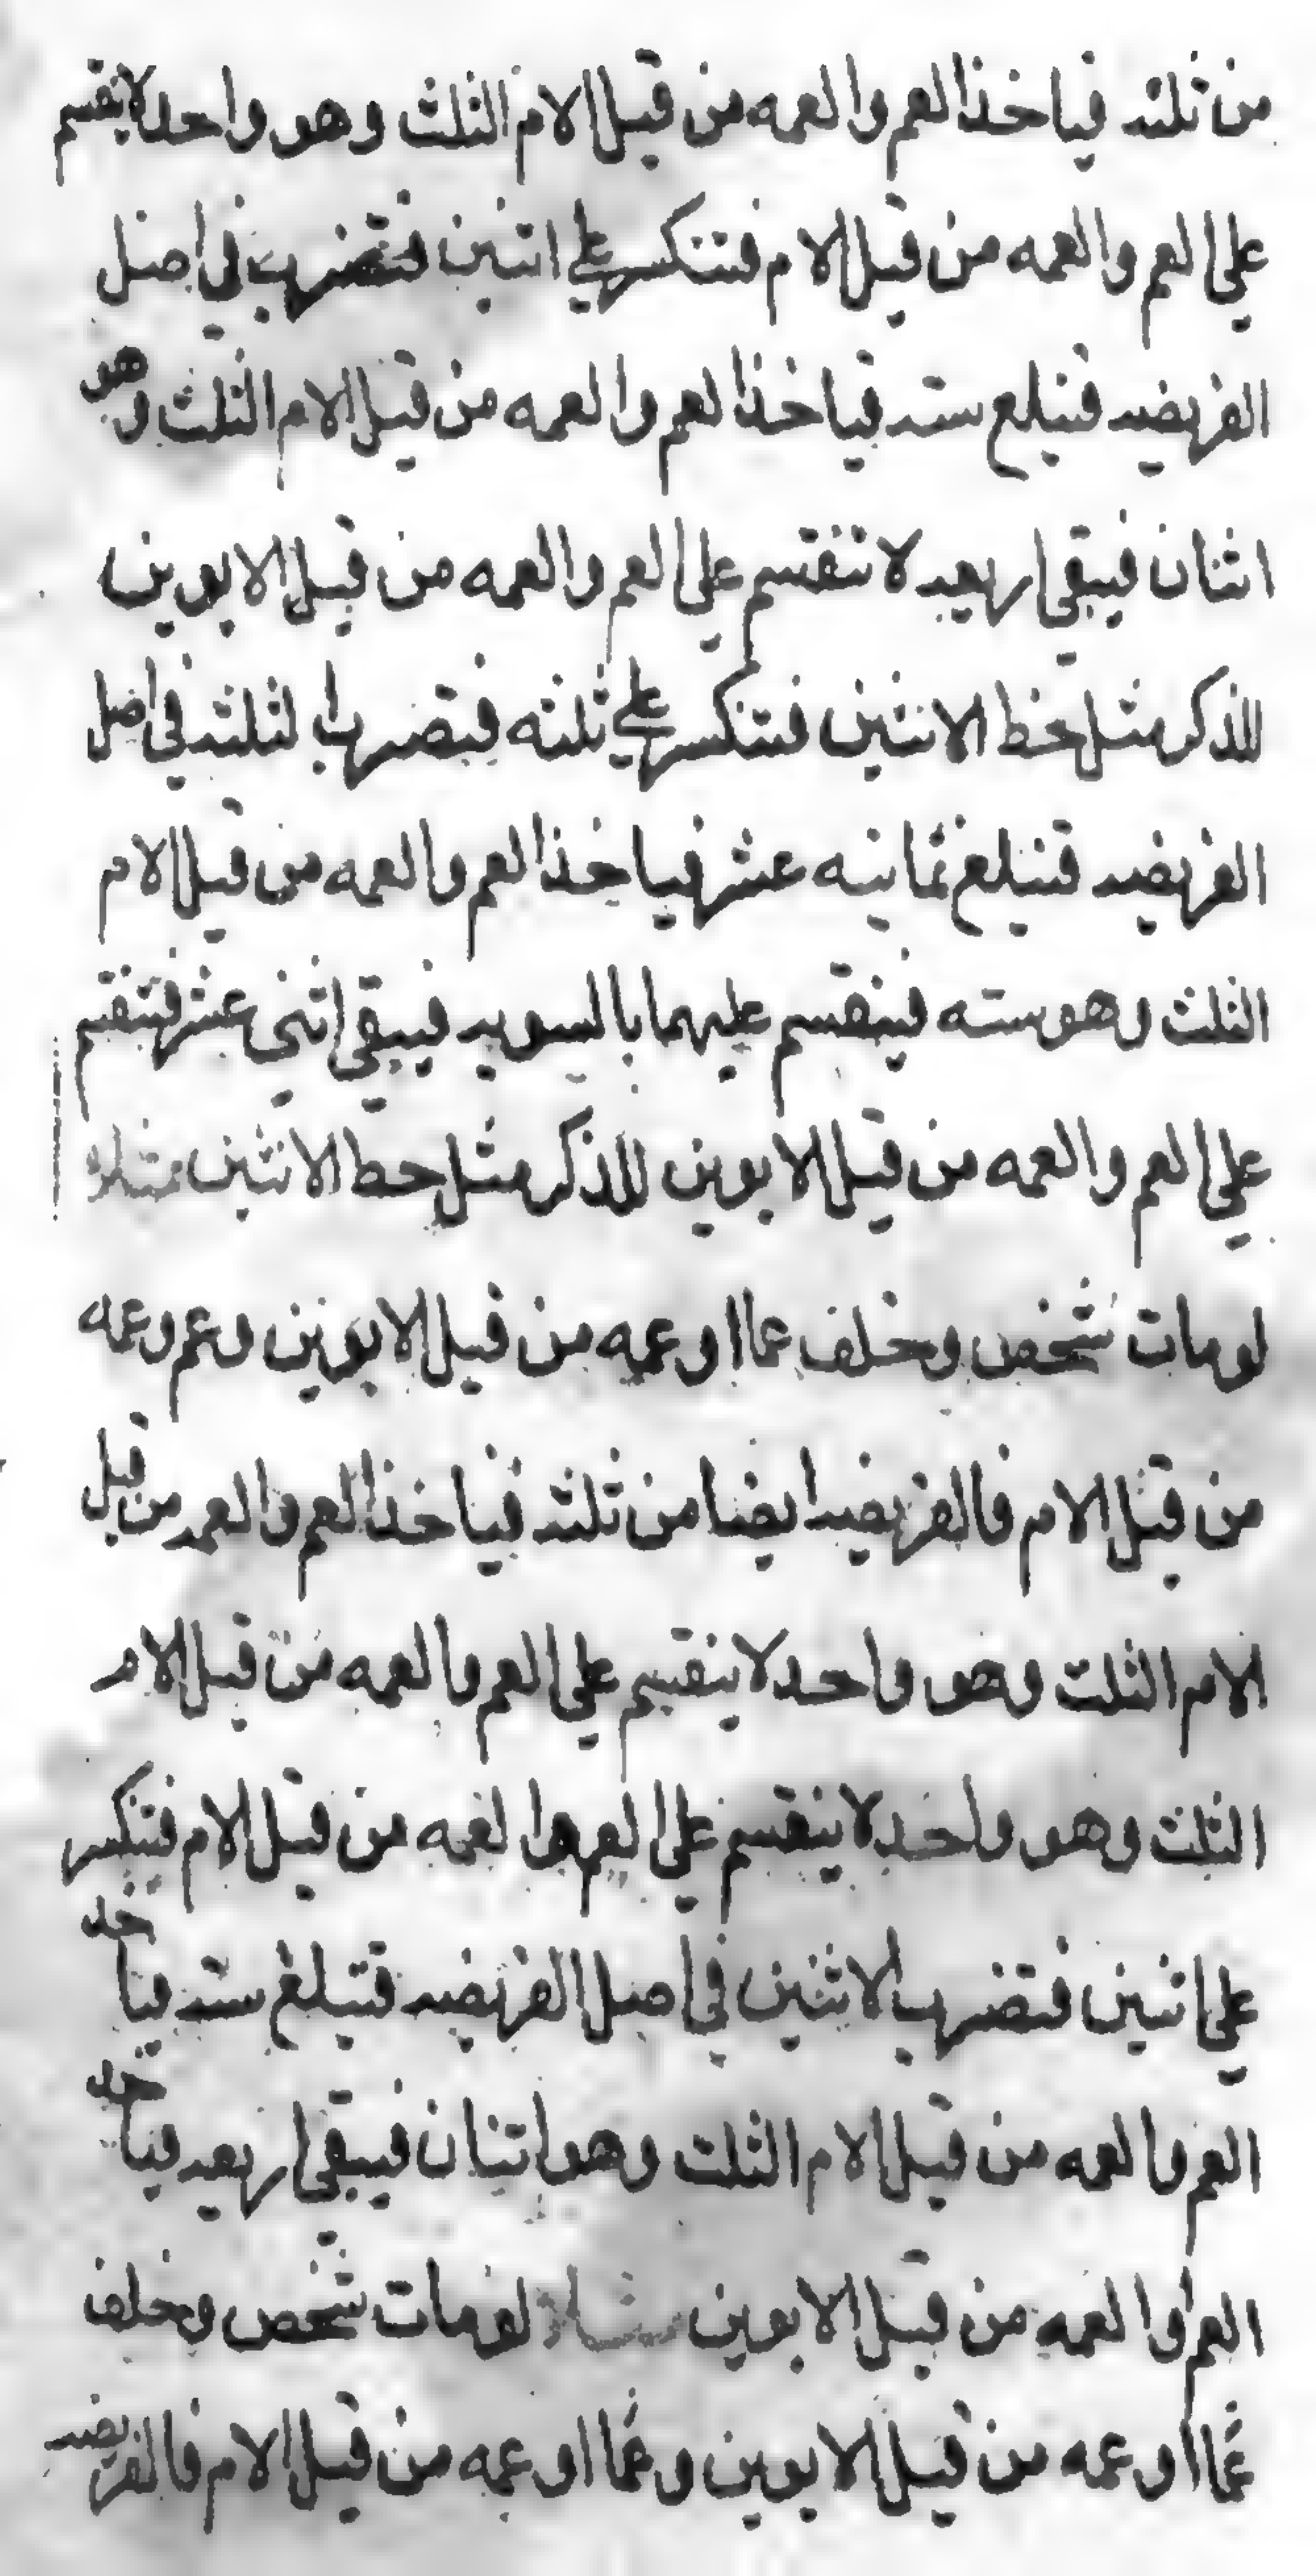 من ثلثه فياخذ العم والعمه من قبل الام الثلث وهو واحد لا ينقسم
علي العم والعمه من قبل الام فتنكسر علي اثنين فتضرب في اصل
الفريضه فتبلغ سته فياخذ العم والعمه من قبل الام الثلث وهو
اثنان فيبقي اربعه لا تنقسم علي العم والعمه من قبل الابوين
للذكر مثل حظ الانثيين فتنكسر علي ثلثه فيضربها لثلثه في اصل
الفريضه فتبلغ ثمانيه عشر فياخذ العم والعمه من قبل الام
الثلث وهو سته فينقسم عليهما بالسويه فيبقي اثني عشر فتنقسم
علي العم والعمه من قبل الابوين للذكر مثل حظ الانثيين مثلا
لومات شخص وخلف عما او عمه من قبل الابوين وعم وعمه
من قبل الام فالفريضه ايضا من ثلثه فياخذ العم والعمه من قبل
الام الثلث وهو واحد لا ينقسم علي العم والعمه من قبل الام
الثلث وهو واحد لا ينقسم علي العم والعمه من قبل الام فتنكسر
علي اثنين فتضرب الاثنين في اصل الفريضه فتبلغ سته فياخذ
العم والعمه من قبل الام الثلث وهو اثنان فيبقي اربعه فياخذ
العم والعمه من قبل الابوين مثلا لومات شخص وخلف
عما او عمه من قبل الابوين وعما او عمه من قبل الام فالفريضه